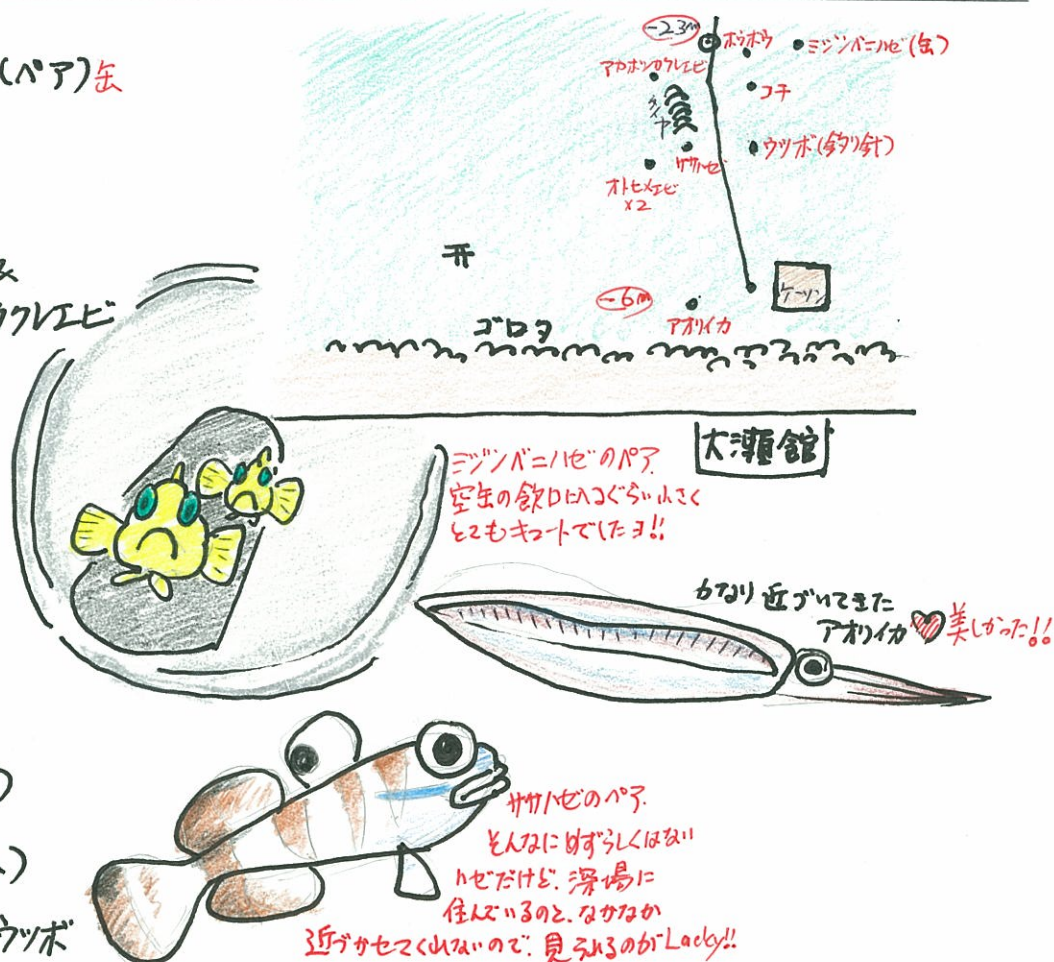 (ペア)缶
-23m
ホウボウ
ミジンベニハゼ(缶)
アカホシカクレエビ
コチ
タイヤ
ウツボ(釣り針)
ササハゼ
オトヒメエビ
×2
カクレエビ
-6m
ケーソン
アオリイカ
ゴロタ
大瀬館
ミジンベニハゼのペア.
空缶の飲口に入るぐらい小さく
とてもキュートでしたヨ!!
かなり近づいてきた
アオリイカ♥美しかった!!
ササハゼのペア.
そんなにめずらしくはない
ハゼだけど、深場に
住んでいるのと、なかなか
近づかせてくれないので、見られるのがLacky!!
ウツボ